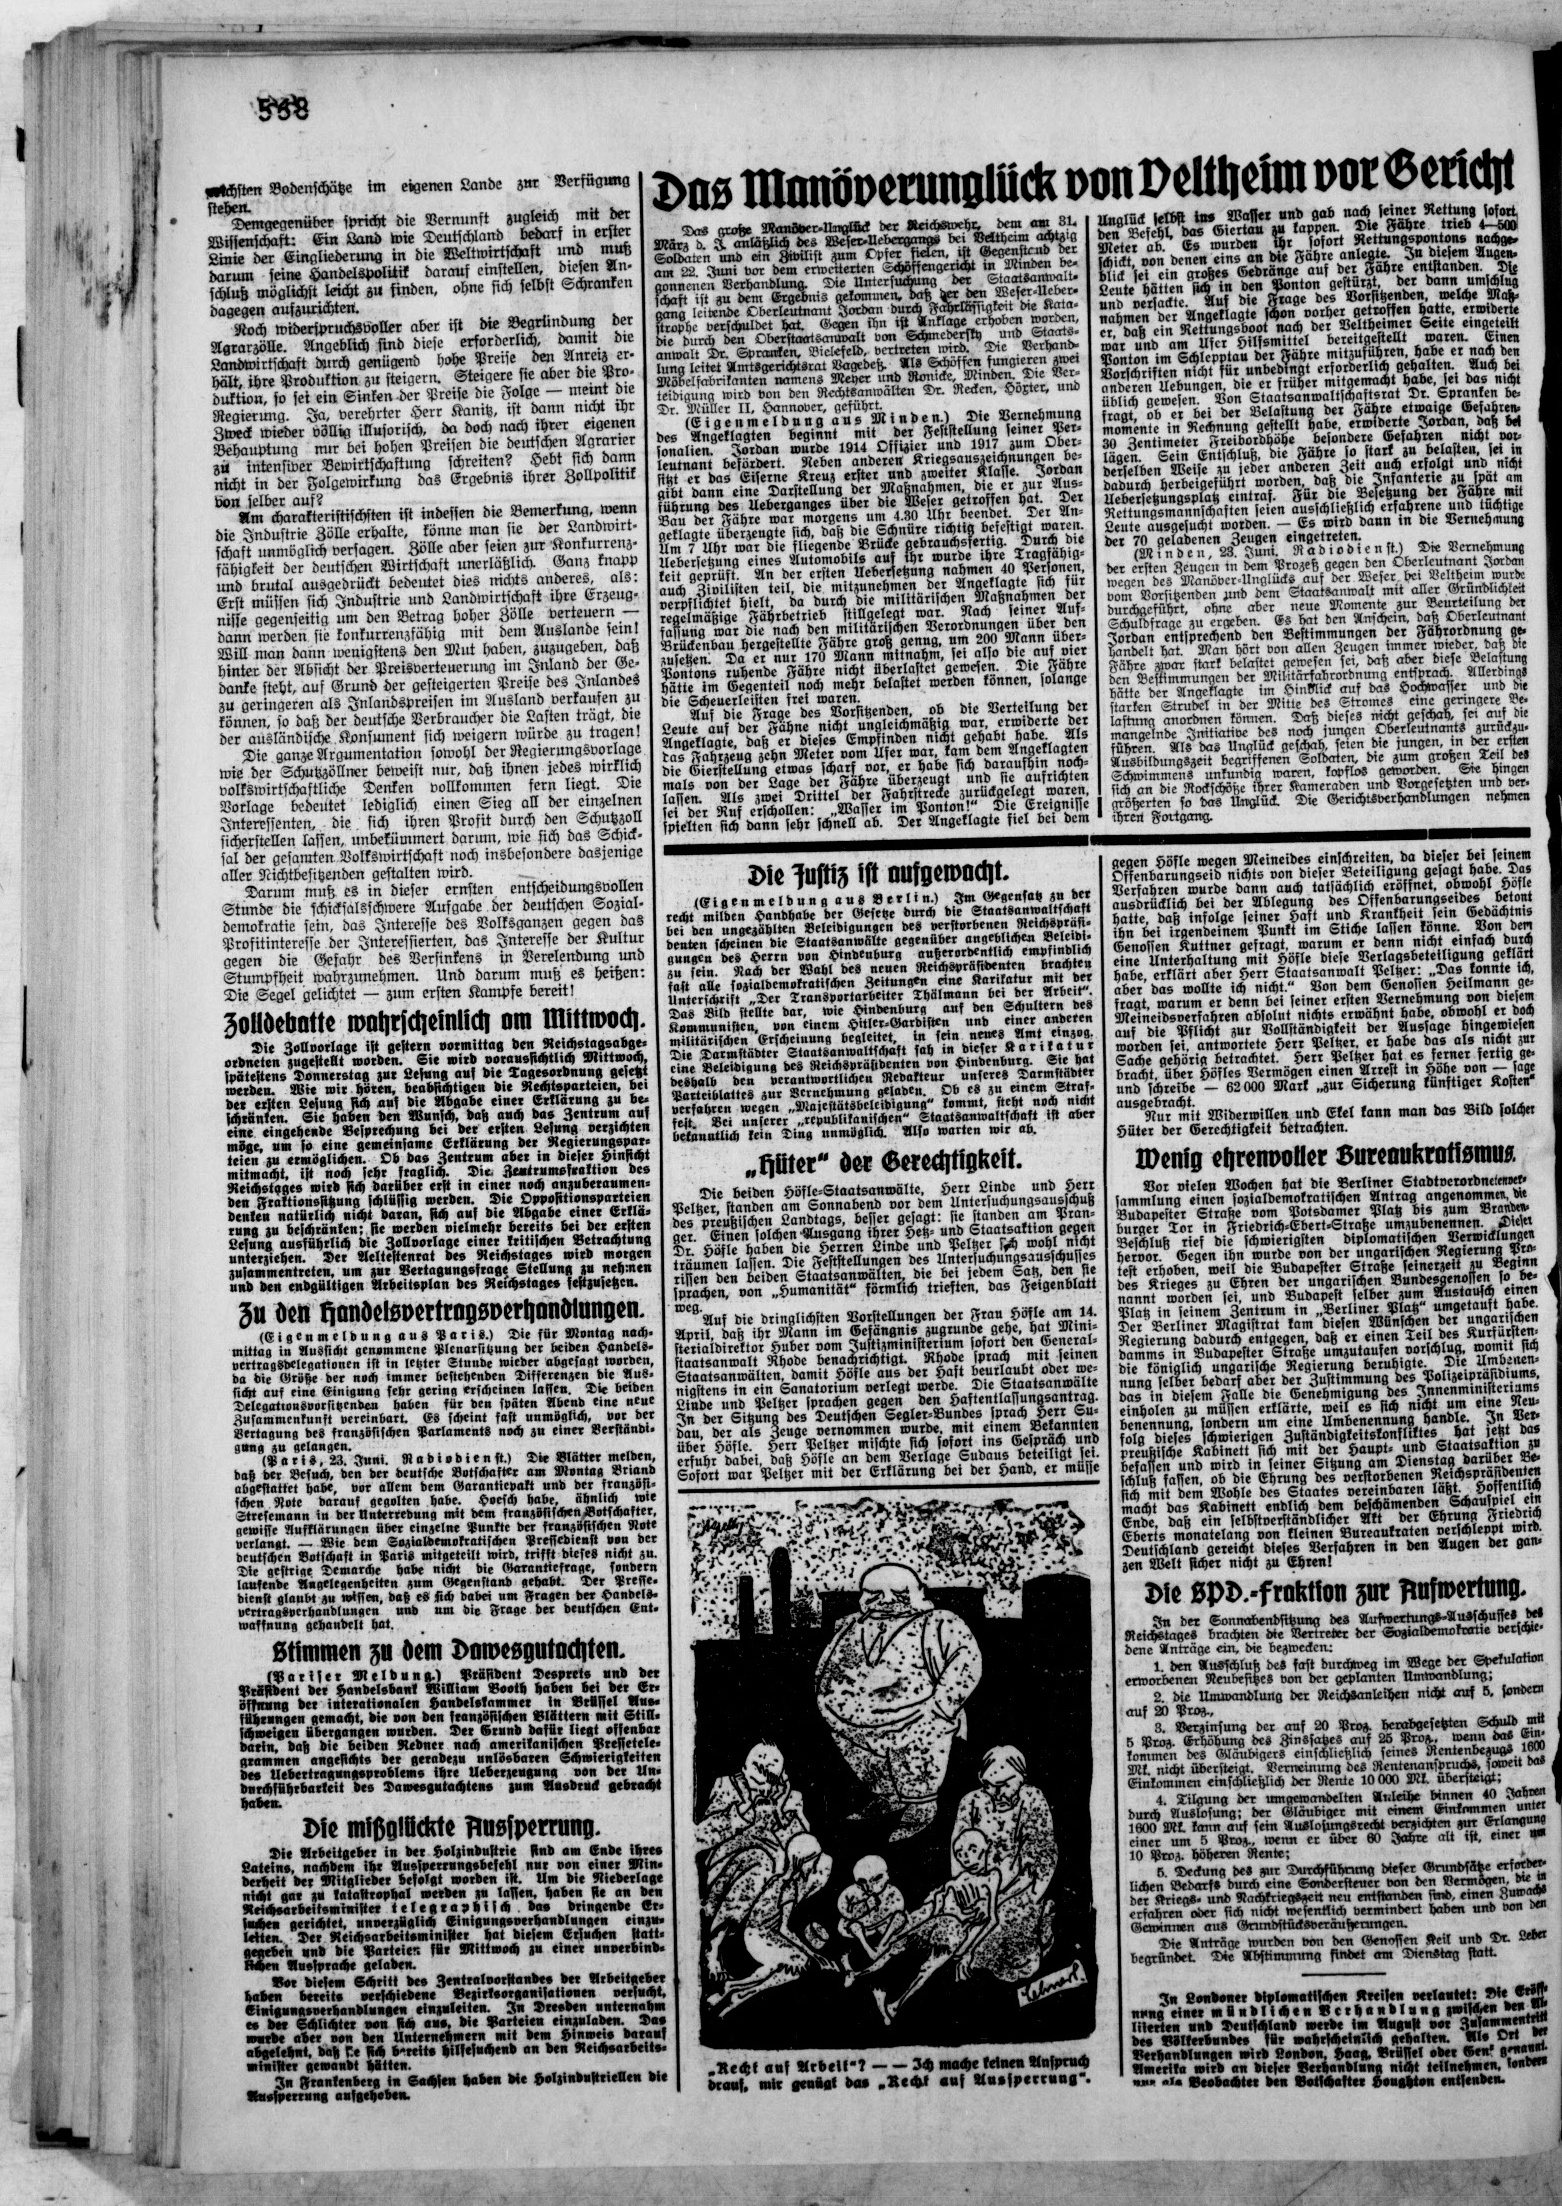 558
reichsten Bodenschätze im eigenen Lande zur Verfügung
stehen.
Demgegenüber spricht die Vernunft zugleich mit der
Wissenschaft: Ein Land wie Deutschland bedarf in erster
Linie der Eingliederung in die Weltwirtschaft und muß
darum seine Handelspolitik darauf einstellen, diesen An-
schluß möglichst leicht zu finden, ohne sich selbst Schranken
dagegen aufzurichten.
Noch widerspruchsvoller aber ist die Begründung der
Agrarzölle. Angeblich sind diese erforderlich, damit die
Landwirtschaft durch genügend hohe Preise den Anreiz er-
hält, ihre Produktion zu steigern. Steigere sie aber die Pro-
duktion, so sei ein Sinken der Preise die Folge — meint die
Regierung. Ja, verehrter Herr Kanitz, ist dann nicht ihr
Zweck wieder völlig illusorisch, da doch nach ihrer eigenen
Behauptung nur bei hohen Preisen die deutschen Agrarier
zu intensiver Bewirtschaftung schreiten? Hebt sich dann
nicht in der Folgewirkung das Ergebnis ihrer Zollpolitik
von selber auf?
Am charakteristischsten ist indessen die Bemerkung, wenn
die Industrie Zölle erhalte, könne man sie der Landwirt-
schaft unmöglich versagen. Zölle aber seien zur Konkurrenz-
fähigkeit der deutschen Wirtschaft unerläßlich. Ganz knapp
und brutal ausgedrückt bedeutet dies nichts anderes, als:
Erst müssen sich Industrie und Landwirtschaft ihre Erzeug-
nisse gegenseitig um den Betrag hoher Zölle verteuern —
dann werden sie konkurrenzfähig mit dem Auslande sein!
Will man dann wenigstens den Mut haben, zuzugeben, daß
hinter der Absicht der Preisverteuerung im Inland der Ge-
danke steht, auf Grund der gesteigerten Preise des Inlandes
zu geringeren als Inlandspreisen im Ausland verkaufen zu
können, so daß der deutsche Verbraucher die Lasten trägt, die
der ausländische Konsument sich weigern würde zu tragen!
Die ganze Argumentation sowohl der Regierungsvorlage
wie der Schutzzöllner beweist nur, daß ihnen jedes wirklich
volkswirtschaftliche Denken vollkommen fern liegt. Die
Vorlage bedeutet lediglich einen Sieg all der einzelnen
Interessenten, die sich ihren Profit durch den Schutzzoll
sicherstellen lassen, unbekümmert darum, wie sich das Schick-
sal der gesamten Volkswirtschaft noch insbesondere dasjenige
aller Nichtbesitzenden gestalten wird.
Darum muß es in dieser ernsten entscheidungsvollen
Stunde die schicksalsschwere Aufgabe der deutschen Sozial-
demokratie sein, das Interesse des Volksganzen gegen das
Profitinteresse der Interessierten, das Interesse der Kultur
gegen die Gefahr des Versinkens in Verelendung und
Stumpfheit wahrzunehmen. Und darum muß es heißen:
Die Segel gelichtet — zum ersten Kampfe bereit!
Zolldebatte wahrscheinlich am Mittwoch.
Die Zollvorlage ist gestern vormittag den Reichstagsabge-
ordneten zugestellt worden. Sie wird voraussichtlich Mittwoch,
spätestens Donnerstag zur Lesung auf die Tagesordnung gesetzt
werden. Wie wir hören, beabsichtigen die Rechtsparteien, bei
der ersten Lesung sich auf die Abgabe einer Erklärung zu be-
schränken. Sie haben den Wunsch, daß auch das Zentrum auf
eine eingehende Besprechung bei der ersten Lesung verzichten
möge, um so eine gemeinsame Erklärung der Regierungspar-
teien zu ermöglichen. Ob das Zentrum aber in dieser Hinsicht
mitmacht, ist noch sehr fraglich. Die Zentrumsfraktion des
Reichstages wird sich darüber erst in einer noch anzuberaumen-
den Fraktionssitzung schlüssig werden. Die Oppositionsparteien
denken natürlich nicht daran, sich auf die Abgabe einer Erklä-
rung zu beschränken; sie werden vielmehr bereits bei der ersten
Lesung ausführlich die Zollvorlage einer kritischen Betrachtung
unterziehen. Der Aeltestenrat des Reichstages wird morgen
zusammentreten, um zur Vertagungsfrage Stellung zu nehmen
und den endgültigen Arbeitsplan des Reichstages festzusetzen.
Zu den Handelsvertragsverhandlungen.
(Eigenmeldung aus Paris.) Die für Montag nach-
mittag in Aussicht genommene Plenarsitzung der beiden Handels-
vertragsdelegationen ist in letzter Stunde wieder abgesagt worden,
da die Größe der noch immer bestehenden Differenzen die Aus-
sicht auf eine Einigung sehr gering erscheinen lassen. Die beiden
Delegationsvorsitzenden haben für den späten Abend eine neue
Zusammenkunft vereinbart. Es scheint fast unmöglich, vor der
Vertagung des französischen Parlaments noch zu einer Verständi-
gung zu gelangen.
(Paris, 23. Juni. Radiodienst.) Die Blätter melden,
daß der Besuch, den der deutsche Botschafter am Montag Briand
abgestattet habe, vor allem dem Garantiepakt und der französi-
schen Note darauf gegolten habe. Hoesch habe, ähnlich wie
Stresemann in der Unterredung mit dem französischen Botschafter,
gewisse Aufklärungen über einzelne Punkte der französischen Note
verlangt. — Wie dem Sozialdemokratischen Pressedienst von der
deutschen Botschaft in Paris mitgeteilt wird, trifft dieses nicht zu.
Die gestrige Demarche habe nicht die Garantiefrage, sondern
laufende Angelegenheiten zum Gegenstand gehabt. Der Presse-
dienst glaubt zu wissen, daß es sich dabei um Fragen der Handels-
vertragsverhandlungen und um die Frage der deutschen Ent-
waffnung gehandelt hat.
Stimmen zu dem Dawesgutachten.
(Pariser Meldung.) Präsident Despreis und der
Präsident der Handelsbank William Booth haben bei der Er-
öffnung der interationalen Handelskammer in Brüssel Aus-
führungen gemacht, die von den französischen Blättern mit Still-
schweigen übergangen wurden. Der Grund dafür liegt offenbar
darin, daß die beiden Redner nach amerikanischen Pressetele-
grammen angesichts der geradezu unlösbaren Schwierigkeiten
des Uebertragungsproblems ihre Ueberzeugung von der Un-
durchführbarkeit des Dawesgutachtens zum Ausdruck gebracht
haben.
Die mißglückte Aussperrung.
Die Arbeitgeber in der Holzindustrie sind am Ende ihres
Lateins, nachdem ihr Aussperrungsbefehl nur von einer Min-
derheit der Mitglieder befolgt worden ist. Um die Niederlage
nicht gar zu katastrophal werden zu lassen, haben sie an den
Reichsarbeitsminister telegraphisch das dringende Er-
suchen gerichtet, unverzüglich Einigungsverhandlungen einzu-
leiten. Der Reichsarbeitsminister hat diesem Ersuchen statt-
gegeben und die Parteien für Mittwoch zu einer unverbind-
lichen Aussprache geladen.
Vor diesem Schritt des Zentralvorstandes der Arbeitgeber
haben bereits verschiedene Bezirksorganisationen versucht,
Einigungsverhandlungen einzuleiten. In Dresden unternahm
es der Schlichter von sich aus, die Parteien einzuladen. Das
wurde aber von den Unternehmern mit dem Hinweis darauf
abgelehnt, daß sie sich bereits hilfesuchend an den Reichsarbeits-
minister gewandt hätten.
In Frankenberg in Sachsen haben die Holzindustriellen die
Aussperrung aufgehoben.
Das Manöverunglück von Veltheim vor Gericht
Das große Manöver-Unglück der Reichswehr, dem am 31.
März d. J. anläßlich des Weser-Uebergangs bei Veltheim achtzig
Soldaten und ein Zivilist zum Opfer fielen, ist Gegenstand der
am 22. Juni vor dem erweiterten Schöffengericht in Minden be-
gonnenen Verhandlung. Die Untersuchung der Staatsanwalt-
schaft ist zu dem Ergebnis gekommen, daß der den Weser-Ueber-
gang leitende Oberleutnant Jordan durch Fahrlässigkeit die Kata-
strophe verschuldet hat. Gegen ihn ist Anklage erhoben worden,
die durch den Oberstaatsanwalt von Schmedersky und Staats-
anwalt Dr. Spranken, Bielefeld, vertreten wird. Die Verhand-
lung leitet Amtsgerichtsrat Vagedeß. Als Schöffen fungieren zwei
Möbelfabrikanten namens Meyer und Ronicke, Minden. Die Ver-
teidigung wird von den Rechtsanwälten Dr. Recken, Höxter, und
Dr. Müller II, Hannover, geführt.
(Eigenmeldung aus Minden.) Die Vernehmung
des Angeklagten beginnt mit der Feststellung seiner Per-
sonalien. Jordan wurde 1914 Offizier und 1917 zum Ober-
leutnant befördert. Neben anderen Kriegsauszeichnungen be-
sitzt er das Eiserne Kreuz erster und zweiter Klasse. Jordan
gibt dann eine Darstellung der Maßnahmen, die er zur Aus-
führung des Ueberganges über die Weser getroffen hat. Der
Bau der Fähre war morgens um 4.30 Uhr beendet. Der An-
geklagte überzeugte sich, daß die Schnüre richtig befestigt waren.
Um 7 Uhr war die fliegende Brücke gebrauchsfertig. Durch die
Uebersetzung eines Automobils auf ihr wurde ihre Tragfähig-
keit geprüft. An der ersten Uebersetzung nahmen 40 Personen,
auch Zivilisten teil, die mitzunehmen der Angeklagte sich für
verpflichtet hielt, da durch die militärischen Maßnahmen der
regelmäßige Fährbetrieb stillgelegt war. Nach seiner Auf-
fassung war die nach den militärischen Verordnungen über den
Brückenbau hergestellte Fähre groß genug, um 200 Mann über-
zusetzen. Da er nur 170 Mann mitnahm, sei also die auf vier
Pontons ruhende Fähre nicht überlastet gewesen. Die Fähre
hätte im Gegenteil noch mehr belastet werden können, solange
die Scheuerleisten frei waren.
Auf die Frage des Vorsitzenden, ob die Verteilung der
Leute auf der Fähne nicht ungleichmäßig war, erwiderte der
Angeklagte, daß er dieses Empfinden nicht gehabt habe. Als
das Fahrzeug zehn Meter vom Ufer war, kam dem Angeklagten
die Gierstellung etwas scharf vor, er habe sich daraufhin noch-
mals von der Lage der Fähre überzeugt und sie aufrichten
lassen. Als zwei Drittel der Fahrstrecke zurückgelegt waren,
sei der Ruf erschollen: „Wasser im Ponton!“ Die Ereignisse
spielten sich dann sehr schnell ab. Der Angeklagte fiel bei dem
Unglück selbst ins Wasser und gab nach seiner Rettung sofort
den Befehl, das Giertau zu kappen. Die Fähre trieb 4—500
Meter ab. Es wurden ihr sofort Rettungspontons nachge-
schickt, von denen eins an die Fähre anlegte. In diesem Augen-
blick sei ein großes Gedränge auf der Fähre entstanden. Die
Leute hätten sich in den Ponton gestürzt, der dann umschlug
und versackte. Auf die Frage des Vorsitzenden, welche Maß-
nahmen der Angeklagte schon vorher getroffen hatte, erwiderte
er, daß ein Rettungsboot nach der Veltheimer Seite eingeteilt
war und am Ufer Hilfsmittel bereitgestellt waren. Einen
Ponton im Schlepptau der Fähre mitzuführen, habe er nach den
Vorschriften nicht für unbedingt erforderlich gehalten. Auch bei
anderen Uebungen, die er früher mitgemacht habe, sei das nicht
üblich gewesen. Von Staatsanwaltschaftsrat Dr. Spranken be-
fragt, ob er bei der Belastung der Fähre etwaige Gefahren-
momente in Rechnung gestellt habe, erwiderte Jordan, daß bei
30 Zentimeter Freibordhöhe besondere Gefahren nicht vor-
lägen. Sein Entschluß, die Fähre so stark zu belasten, sei in
derselben Weise zu jeder anderen Zeit auch erfolgt und nicht
dadurch herbeigeführt worden, daß die Infanterie zu spät am
Uebersetzungsplatz eintraf. Für die Besetzung der Fähre mit
Rettungsmannschaften seien ausschließlich erfahrene und tüchtige
Leute ausgesucht worden. — Es wird dann in die Vernehmung
der 70 geladenen Zeugen eingetreten.
(Minden, 23. Juni. Radiodienst.) Die Vernehmung
der ersten Zeugen in dem Prozeß gegen den Oberleutnant Jordan
wegen des Manöver-Unglücks auf der Weser bei Veltheim wurde
vom Vorsitzenden und dem Staatsanwalt mit aller Gründlichkeit
durchgeführt, ohne aber neue Momente zur Beurteilung der
Schuldfrage zu ergeben. Es hat den Anschein, daß Oberleutnant
Jordan entsprechend den Bestimmungen der Fährordnung ge-
handelt hat. Man hört von allen Zeugen immer wieder, daß die
Fähre zwar stark belastet gewesen sei, daß aber diese Belastung
den Bestimmungen der Militärfahrordnung entsprach. Allerdings
hätte der Angeklagte im Hinblick auf das Hochwasser und die
starken Strudel in der Mitte des Stromes eine geringere Be-
lastung anordnen können. Daß dieses nicht geschah, sei auf die
mangelnde Initiative des noch jungen Oberleutnants zurückzu-
führen. Als das Unglück geschah, seien die jungen, in der ersten
Ausbildungszeit begriffenen Soldaten, die zum großen Teil des
Schwimmens unkundig waren, kopflos geworden. Sie hingen
sich an die Rockschöße ihrer Kameraden und Vorgesetzten und ver-
größerten so das Unglück. Die Gerichtsverhandlungen nehmen
ihren Fortgang.
Die Justiz ist aufgewacht.
(Eigenmeldung aus Berlin.) Im Gegensatz zu der
recht milden Handhabe der Gesetze durch die Staatsanwaltschaft
bei den ungezählten Beleidigungen des verstorbenen Reichspräsi-
denten scheinen die Staatsanwälte gegenüber angeblichen Beleidi-
gungen des Herrn von Hindenburg außerordentlich empfindlich
zu sein. Nach der Wahl des neuen Reichspräsidenten brachten
fast alle sozialdemokratischen Zeitungen eine Karikatur mit der
Unterschrift „Der Transportarbeiter Thälmann bei der Arbeit“.
Das Bild stellte dar, wie Hindenburg auf den Schultern des
Kommunisten, von einem Hitler-Gardisten und einer anderen
militärischen Erscheinung begleitet, in sein neues Amt einzog.
Die Darmstädter Staatsanwaltschaft sah in dieser Karikatur
eine Beleidigung des Reichspräsidenten von Hindenburg. Sie hat
deshalb den verantwortlichen Redakteur unseres Darmstädter
Parteiblattes zur Vernehmung geladen. Ob es zu einem Straf-
verfahren wegen „Majestätsbeleidigung“ kommt, steht noch nicht
fest. Bei unserer „republikanischen“ Staatsanwaltschaft ist aber
bekanntlich kein Ding unmöglich. Also warten wir ab.
„Hüter“ der Gerechtigkeit.
Die beiden Höfle-Staatsanwälte, Herr Linde und Herr
Peltzer, standen am Sonnabend vor dem Untersuchungsausschuß
des preußischen Landtags, besser gesagt: sie standen am Pran-
ger. Einen solchen Ausgang ihrer Hetz- und Staatsaktion gegen
Dr. Höfle haben die Herren Linde und Peltzer sich wohl nicht
träumen lassen. Die Feststellungen des Untersuchungsausschusses
rissen den beiden Staatsanwälten, die bei jedem Satz, den sie
sprachen, von „Humanität“ förmlich trieften, das Feigenblatt
weg.
Auf die dringlichsten Vorstellungen der Frau Höfle am 14.
April, daß ihr Mann im Gefängnis zugrunde gehe, hat Mini-
sterialdirektor Huber vom Justizministerium sofort den General-
staatsanwalt Rhode benachrichtigt. Rhode sprach mit seinen
Staatsanwälten, damit Höfle aus der Haft beurlaubt oder we-
nigstens in ein Sanatorium verlegt werde. Die Staatsanwälte
Linde und Peltzer sprachen gegen den Haftentlassungsantrag.
In der Sitzung des Deutschen Segler-Bundes sprach Herr Su-
dau, der als Zeuge vernommen wurde, mit einem Bekannten
über Höfle. Herr Peltzer mischte sich sofort ins Gespräch und
erfuhr dabei, daß Höfle an dem Verlage Sudaus beteiligt sei.
Sofort war Peltzer mit der Erklärung bei der Hand, er müsse
gegen Höfle wegen Meineides einschreiten, da dieser bei seinem
Offenbarungseid nichts von dieser Beteiligung gesagt habe. Das
Verfahren wurde dann auch tatsächlich eröffnet, obwohl Höfle
ausdrücklich bei der Ablegung des Offenbarungseides betont
hatte, daß infolge seiner Haft und Krankheit sein Gedächtnis
ihn bei irgendeinem Punkt im Stiche lassen könne. Von dem
Genossen Kuttner gefragt, warum er denn nicht einfach durch
eine Unterhaltung mit Höfle diese Verlagsbeteiligung geklärt
habe, erklärt aber Herr Staatsanwalt Peltzer: „Das konnte ich,
aber das wollte ich nicht.“ Von dem Genossen Heilmann ge-
fragt, warum er denn bei seiner ersten Vernehmung von diesem
Meineidsverfahren absolut nichts erwähnt habe, obwohl er doch
auf die Pflicht zur Vollständigkeit der Aussage hingewiesen
worden sei, antwortete Herr Peltzer, er habe das als nicht zur
Sache gehörig betrachtet. Herr Peltzer hat es ferner fertig ge-
bracht, über Höfles Vermögen einen Arrest in Höhe von — sage
und schreibe — 62 000 Mark „zur Sicherung künftiger Kosten“
ausgebracht.
Nur mit Widerwillen und Ekel kann man das Bild solcher
Hüter der Gerechtigkeit betrachten.
Wenig ehrenvoller Bureaukratismus.
Vor vielen Wochen hat die Berliner Stadtverordnetenver-
sammlung einen sozialdemokratischen Antrag angenommen, die
Budapester Straße vom Potsdamer Platz bis zum Branden-
burger Tor in Friedrich-Ebert-Straße umzubenennen. Dieser
Beschluß rief die schwierigsten diplomatischen Verwicklungen
hervor. Gegen ihn wurde von der ungarischen Regierung Pro-
test erhoben, weil die Budapester Straße seinerzeit zu Beginn
des Krieges zu Ehren der ungarischen Bundesgenossen so be-
nannt worden sei, und Budapest selber zum Austausch einen
Platz in seinem Zentrum in „Berliner Platz“ umgetauft habe.
Der Berliner Magistrat kam diesen Wünschen der ungarischen
Regierung dadurch entgegen, daß er einen Teil des Kurfürsten-
damms in Budapester Straße umzutaufen vorschlug, womit sich
die königlich ungarische Regierung beruhigte. Die Umbenen-
nung selber bedarf aber der Zustimmung des Polizeipräsidiums,
das in diesem Falle die Genehmigung des Innenministeriums
einholen zu müssen erklärte, weil es sich nicht um eine Neu-
benennung, sondern um eine Umbenennung handle. In Ver-
folg dieses schwierigen Zuständigkeitskonfliktes hat jetzt das
preußische Kabinett sich mit der Haupt- und Staatsaktion zu
befassen und wird in seiner Sitzung am Dienstag darüber Be-
schluß fassen, ob die Ehrung des verstorbenen Reichspräsidenten
sich mit dem Wohle des Staates vereinbaren läßt. Hoffentlich
macht das Kabinett endlich dem beschämenden Schauspiel ein
Ende, daß ein selbstverständlicher Akt der Ehrung Friedrich
Eberts monatelang von kleinen Bureaukraten verschleppt wird.
Deutschland gereicht dieses Verfahren in den Augen der gan-
zen Welt sicher nicht zu Ehren!
Die SPD.-Fraktion zur Aufwertung.
In der Sonnabendsitzung des Aufwertungs-Ausschusses des
Reichstages brachten die Vertreter der Sozialdemokratie verschie-
dene Anträge ein, die bezwecken:
1. den Ausschluß des fast durchweg im Wege der Spekulation
erworbenen Neubesitzes von der geplanten Umwandlung;
2. die Umwandlung der Reichsanleihen nicht auf 5, sondern
auf 20 Proz.,
3. Verzinsung der auf 20 Proz. herabgesetzten Schuld mit
5 Proz. Erhöhung des Zinssatzes auf 25 Proz., wenn das Ein-
kommen des Gläubigers einschließlich seines Rentenbezugs 1600
Mk. nicht übersteigt. Verneinung des Rentenanspruchs, soweit das
Einkommen einschließlich der Rente 10 000 Mk. übersteigt;
4. Tilgung der umgewandelten Anleihe binnen 40 Jahren
durch Auslosung; der Gläubiger mit einem Einkommen unter
1600 Mk. kann auf sein Auslosungsrecht verzichten zur Erlangung
einer um 5 Proz., wenn er über 60 Jahre alt ist, einer um
10 Proz. höheren Rente;
5. Deckung des zur Durchführung dieser Grundsätze erforder-
lichen Bedarfs durch eine Sondersteuer von den Vermögen, die in
der Kriegs- und Nachkriegszeit neu entstanden sind, einen Zuwachs
erfahren oder sich nicht wesentlich vermindert haben und von den
Gewinnen aus Grundstücksveräußerungen.
Die Anträge wurden von den Genossen Keil und Dr. Leber
begründet. Die Abstimmung findet am Dienstag statt.
In Londoner diplomatischen Kreisen verlautet: Die Eröff-
nung einer mündlichen Verhandlung zwischen den Al-
liierten und Deutschland werde im August vor Zusammentritt
des Völkerbundes für wahrscheinlich gehalten. Als Ort der
Verhandlungen wird London, Haag, Brüssel oder Genf genannt.
Amerika wird an dieser Verhandlung nicht teilnehmen, sondern
nur als Beobachter den Botschafter Houghton entsenden.
„Recht auf Arbeit“? — — Ich mache keinen Anspruch
drauf, mir genügt das „Recht auf Aussperrung“.